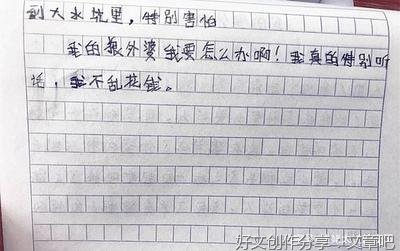 到大水坑里，特别害怕
我的狼外婆我要怎么办啊！我真的特别听
话，我不乱花钱。
好文创作分享－文章吧